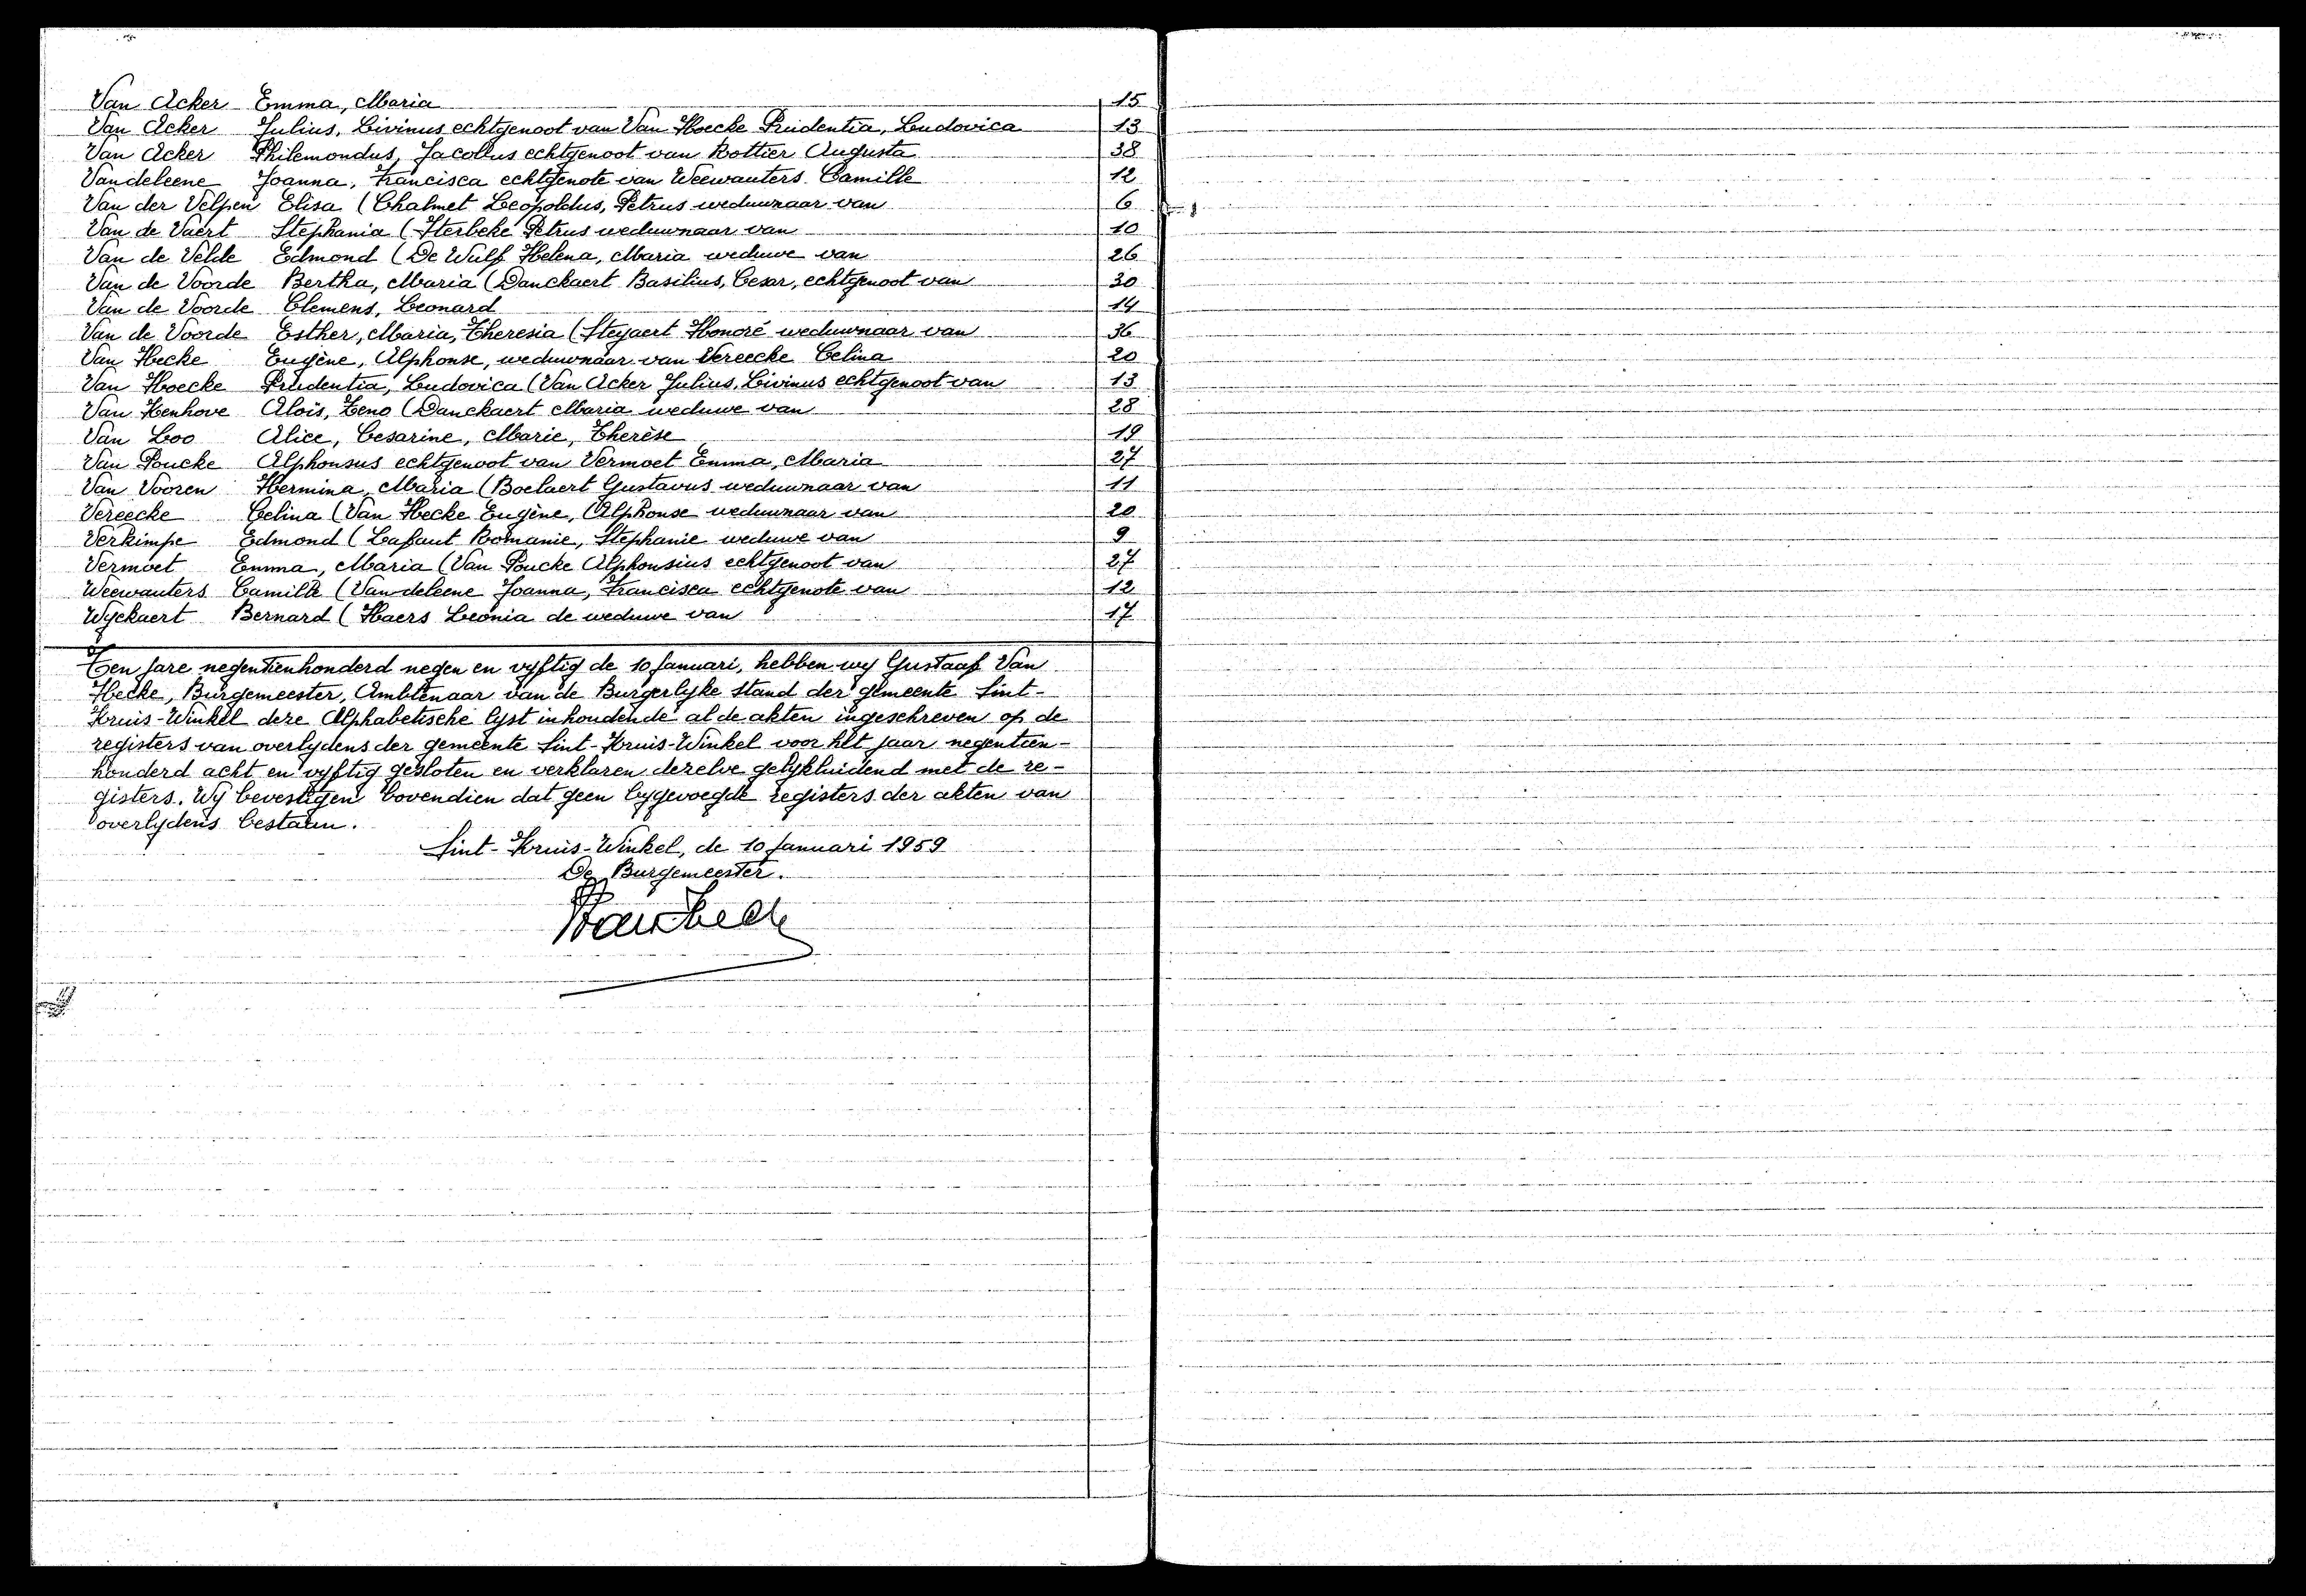 Van Acker Emma, Maria 15
Van Acker Julius, Livinus echtgenoot van Van Hoecke Prudentia, Ludovica 13
Van Acker Philemondus, Jacobus echtgenoot van Rottier Augusta 38
Vandeleene Joanna, Francisca echtgenote van Weewauters Camille 12
Van der Velpen Elisa (Chalmet Leopoldus, Petrus weduwnaar van 6
Van de Vaert Stephania (Sterbeke Petrus weduwnaar van 10
Van de Velde Edmond (De Wulf Helena, Maria weduwe van 26
Van de Voorde Bertha, Maria (Danckaert Basilius, Cesar, echtgenoot van 30
Van de Voorde Clemens, Leonard 14
Van de Voorde Esther, Maria, Theresia (Steyaert Honoré weduwnaar van 36
Van Hecke Eugène, Alphonse, weduwnaar van Vereecke Celina 20
Van Hoecke Prudentia, Ludovica (Van Acker Julius, Livinus echtgenoot van 13
Van Kenhove Aloïs, Zeno (Danckaert Maria weduwe van 28
Van Loo Alice, Cesarine, Marie, Therèse 19
Van Poucke Alphonsus echtgenoot van Vermoet Emma, Maria 27
Van Vooren Hermina, Maria (Boelaert Gustavus weduwnaar van 11
Vereecke Celina (Van Hecke Eugène, Alphonse weduwnaar van 20
Verkimpe Edmond (Lafaut Romanie, Stephanie weduwe van 9
Vermoet Emma, Maria (Van Poucke Alphonsius echtgenoot van 27
Weewauters Camille (Vandeleene Joanna, Francisca echtgenote van 12
Wyckaert Bernard (Haers Leonia de weduwe van 17
Ten jare negentienhonderd negen en vyftig de 10 Januari, hebben wy Gustaaf Van
Hecke, Burgemeester, Ambtenaar van de Burgerlyke Stand der gemeente Sint-
Kruis-Winkel deze Alphabetische lyst inhoudende al de akten ingeschreven op de
registers van overlydens der gemeente Sint-Kruis-Winkel voor het jaar negentien-
honderd acht en vyftig gesloten en verklaren dezelve gelykluidend met de re-
gisters. Wy bevestigen bovendien dat geen bygevoegde registers der akten van
overlydens bestaan.
Sint-Kruis-Winkel, de 10 Januari 1959
De Burgemeester.